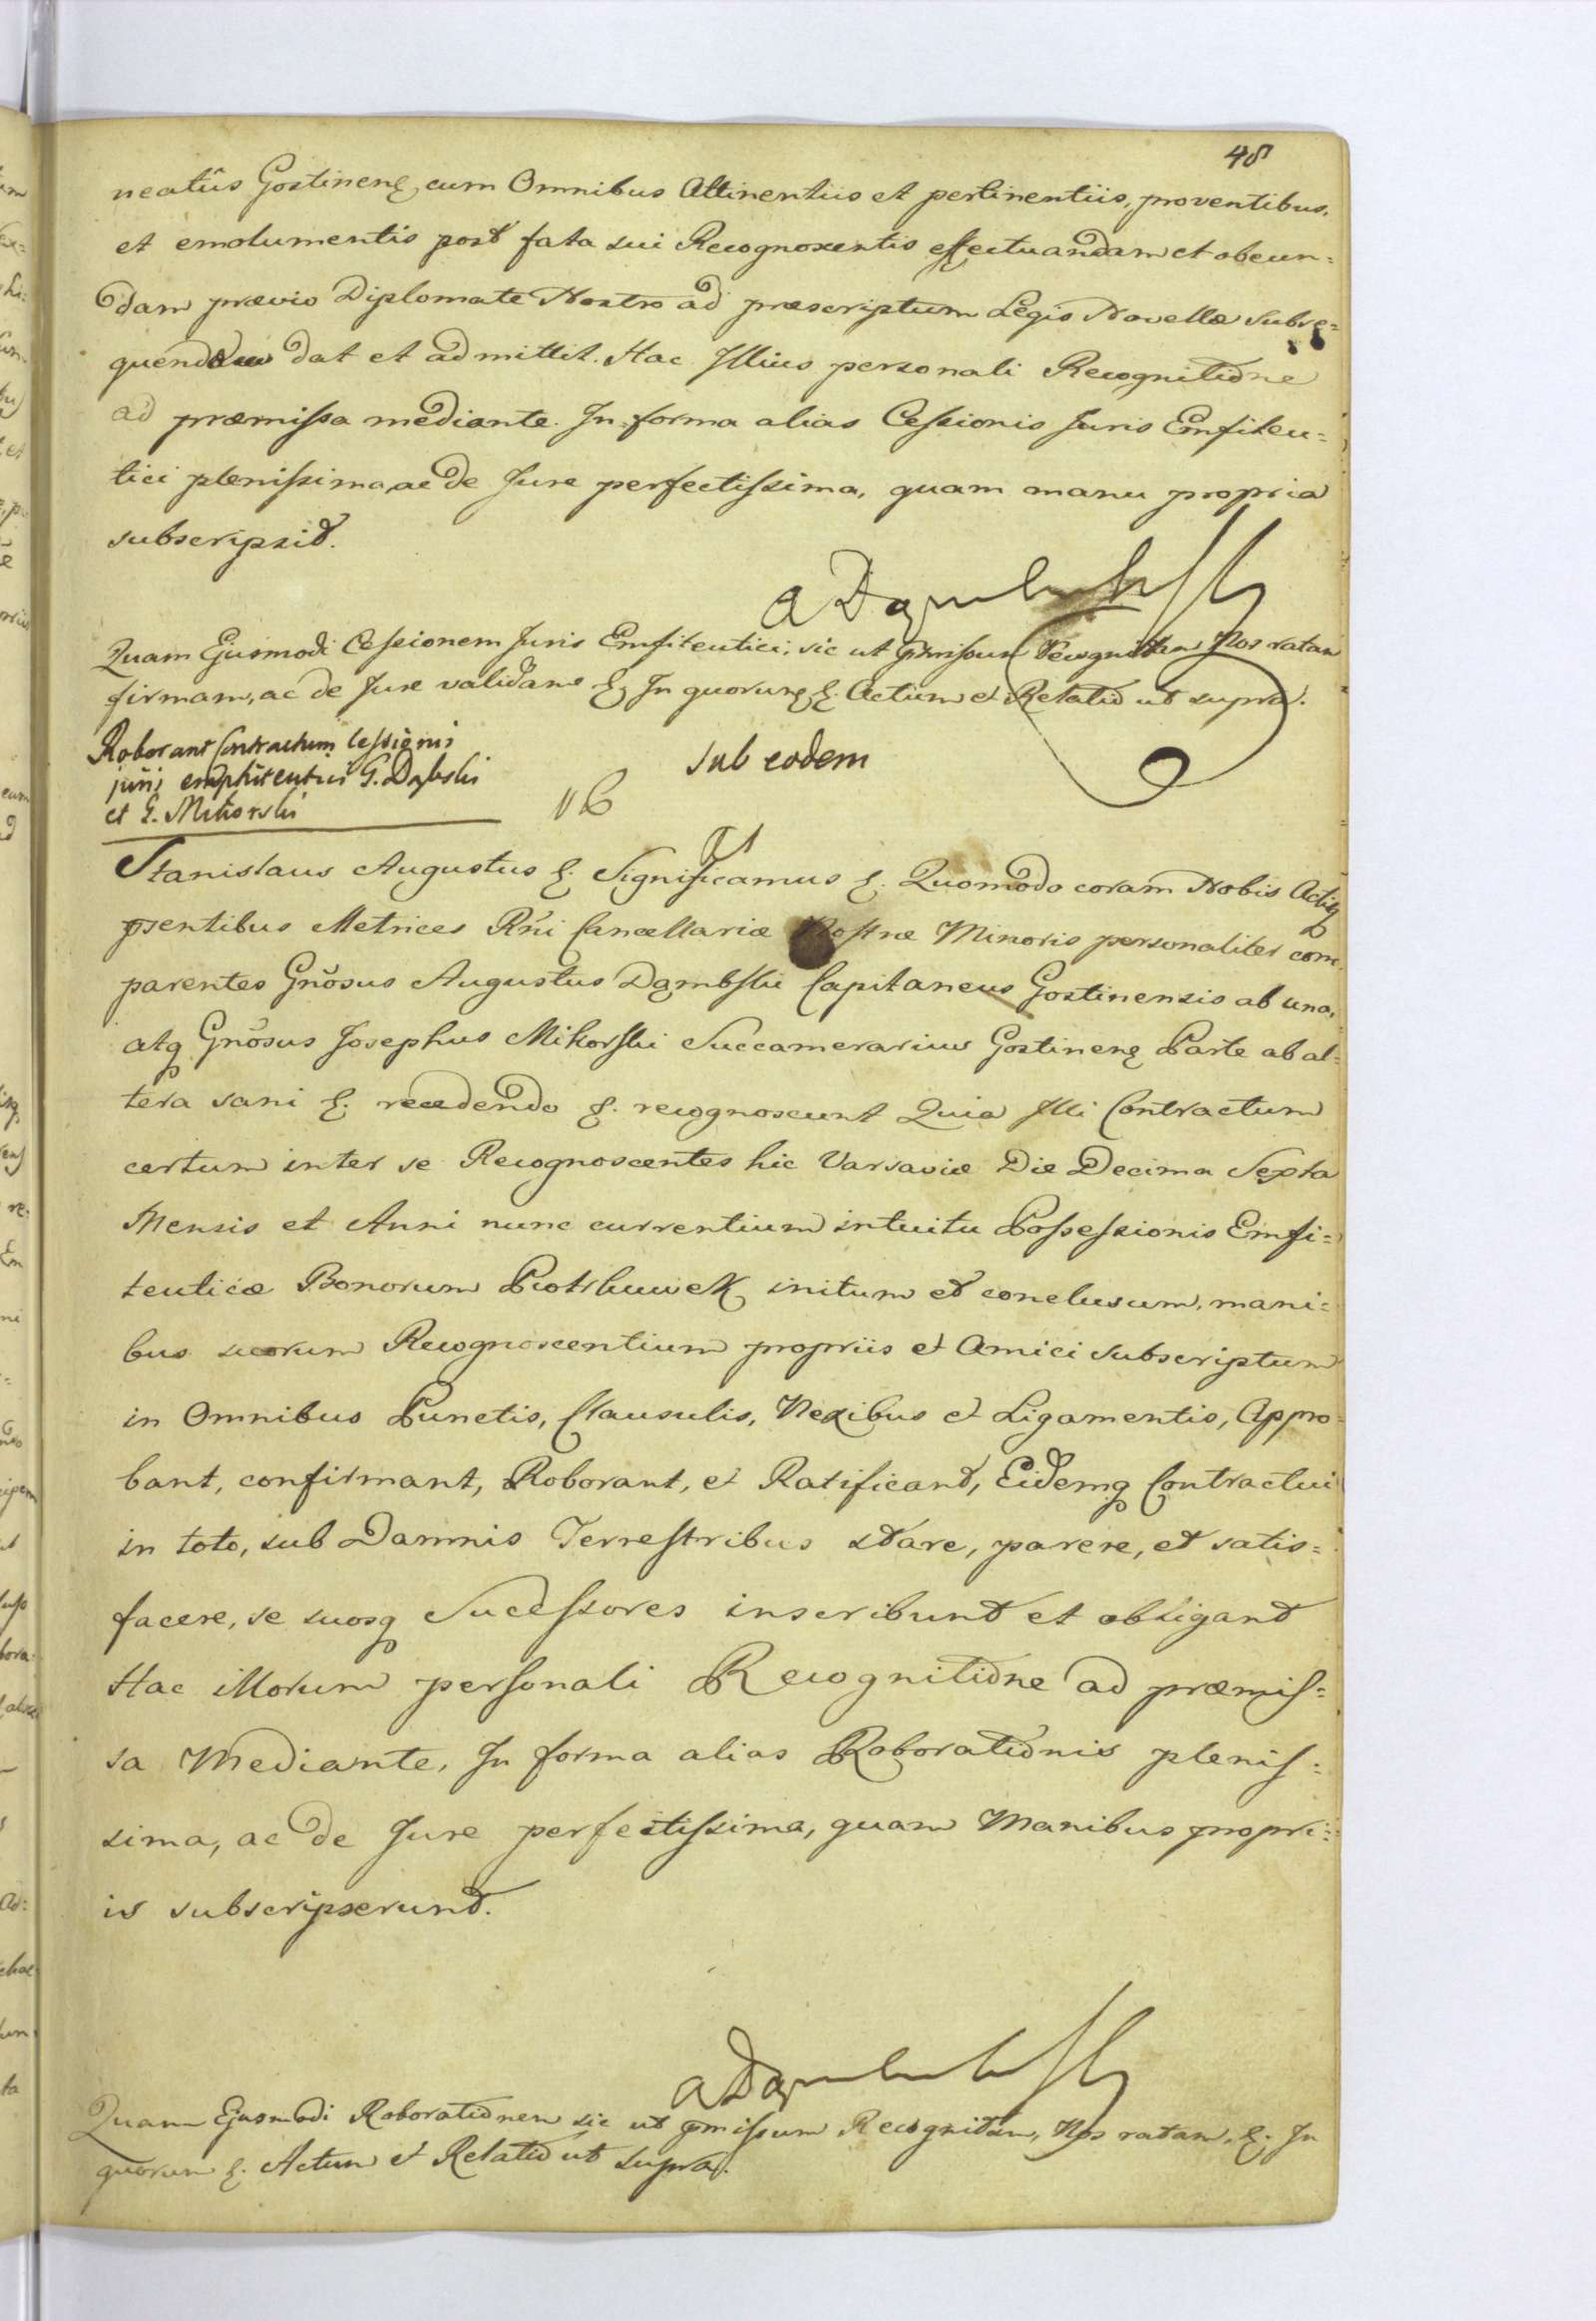 48
neatûs Gostinenẽ, cum Omnibus Attinentiis et pertinentiis, proventibus,
et emolumentis post fata sui Recognoxentis effectuandam et obeun=
dam prævio Diplomate Nostro ad præscriptum Legis Novellæ subse=
quendum dat et admittit. Hac Illius personali Recognitione
ad præmissa mediante. In forma alias Cessionis Juris Emfiteu=
tici plenissima, ac de Jure perfectissima, quam manu propria
subscripsit.
A Dąmbski
Quam Ejusmodi Cessionem Juris Emfiteutici, sic ut pmissum Recognitam Nos ratam
firmam, ac de Jure validam &. In quorum &. Actum et Relatio ut supra.
Roborant Contractum Cessionis
juris emphiteutici G. Dąbski
et G. Mikorski
sub eodem
Stanislaus Augustus &. Significamus &. Quomodo coram Nobis Actisq
psentibus Metrices Rñi Cancellariæ Nostræ Minoris personaliter com
parentes Gñosus Augustus Dąmbski Capitaneus Gostinensis ab una,
atq Gñosus Josephus Mikorski Succamerarius Gostinenẽ Parte ab al=
tera sani &. recedendo &. recognoscunt Quia Illi Contractum
certum inter se Recognoscentes hic Varsaviæ Die Decima Sexta
Mensis et Anni nunc currentium intuitu Possessionis Emfi=
teuticæ Bonorum Piotrkuwek initum et conclusum, mani=
bus suorum Recognoscentium propriis et Amici subscriptum
in Omnibus Punctis, Clausulis, Nexibus et Ligamentis, Appro=
bant, confirmant, Roborant, et Ratificant, Eidemq Contractui
in toto, sub Damnis Terrestribus stare, parere, et satis=
facere, se suosq Sucessores inscribunt et obligant
Hac illorum personali Recognitione ad præmis=
sa Mediante, In forma alias Roborationis plenis=
sima, ac de Jure perfectissima, quam Manibus propri=
is subscripserunt.
A Dąmbski
Quam Ejusmodi Roborationem sic ut pmissum Recognitam, Nos ratam, &. In
quorum &. Actum et Relatio ut supra.